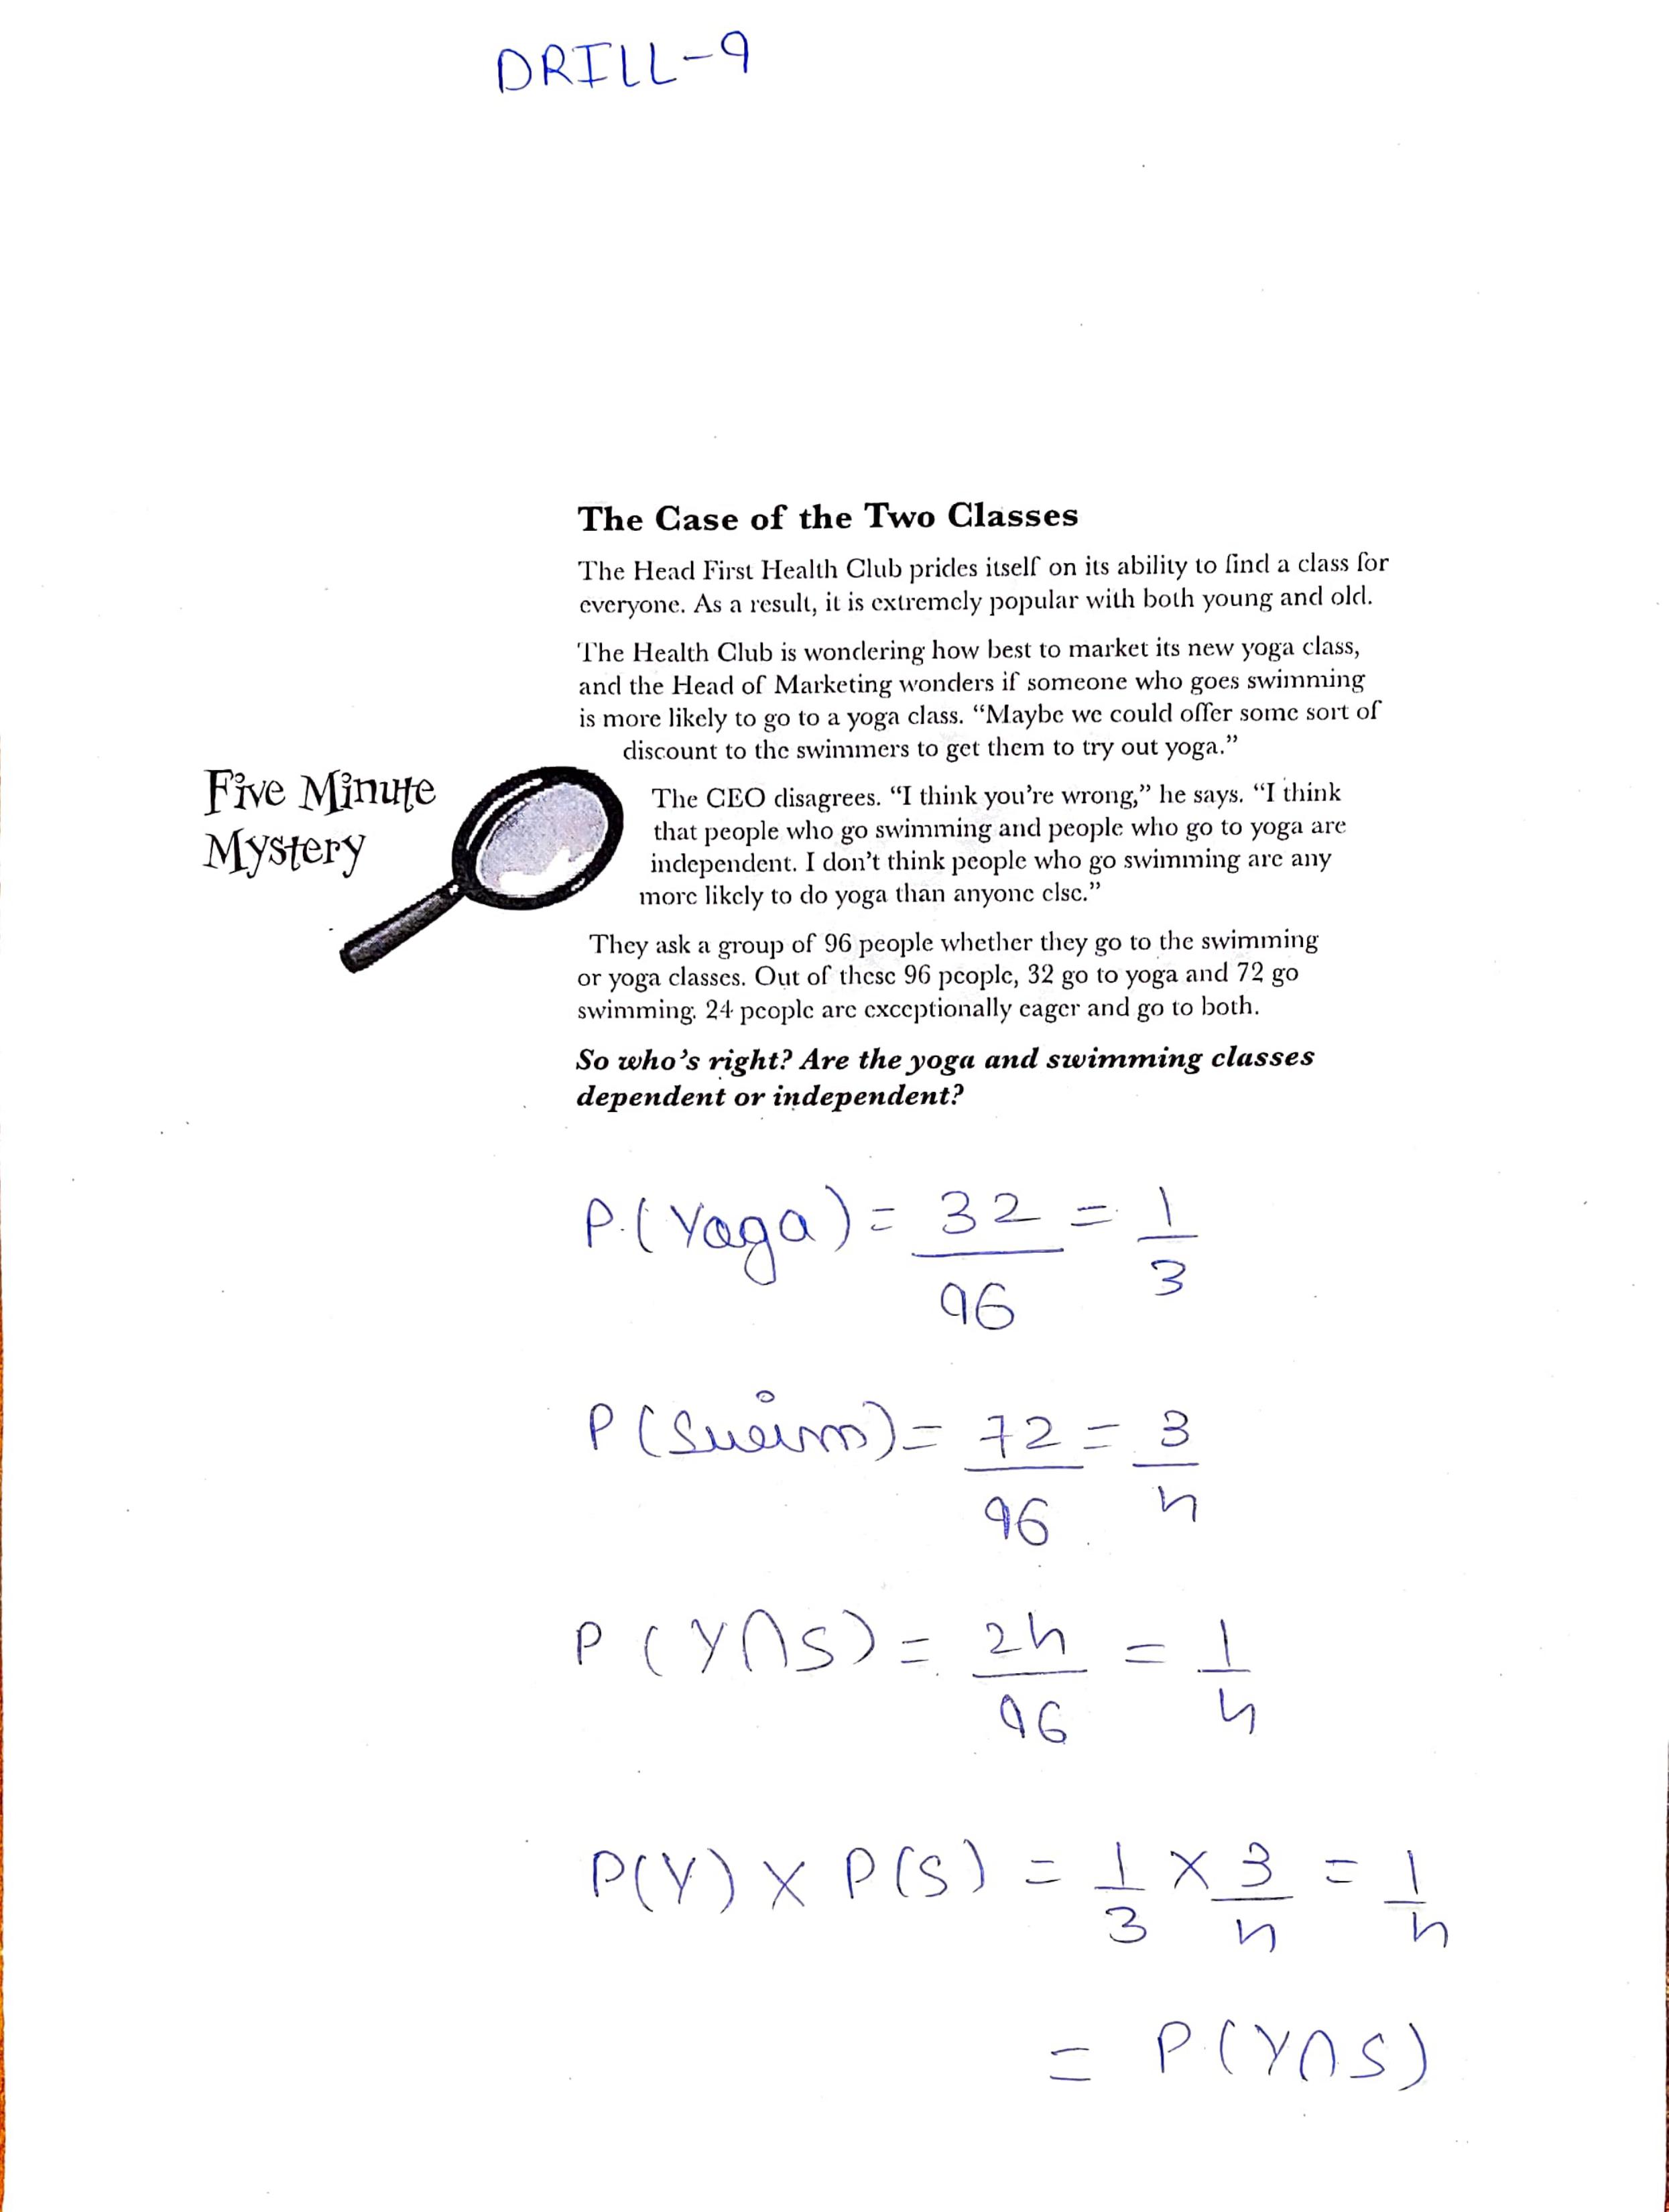 DRILL-9
The Case of the Two Classes
The Head First Health Club prides itself on its ability to find a class for
everyone. As a result, it is extremely popular with both young and old.
The Health Club is wondering how best to market its new yoga class,
and the Head of Marketing wonders if someone who goes swimming
is more likely to go to a yoga class. “Maybe we could offer some sort of
discount to the swimmers to get them to try out yoga.”
Five Minute
Mystery
The CEO disagrees. “I think you’re wrong,” he says. “I think
that people who go swimming and people who go to yoga are
independent. I don’t think people who go swimming are any
more likely to do yoga than anyone else.”
They ask a group of 96 people whether they go to the swimming
or yoga classes. Out of these 96 people, 32 go to yoga and 72 go
swimming. 24 people are exceptionally eager and go to both.
So who’s right? Are the yoga and swimming classes
dependent or independent?
P(Yoga) = 32/96 = 1/3
P(Swim) = 72/96 = 3/4
P(Y∩S) = 24/96 = 1/4
P(Y) × P(S) = 1/3 × 3/4 = 1/4
= P(Y∩S)